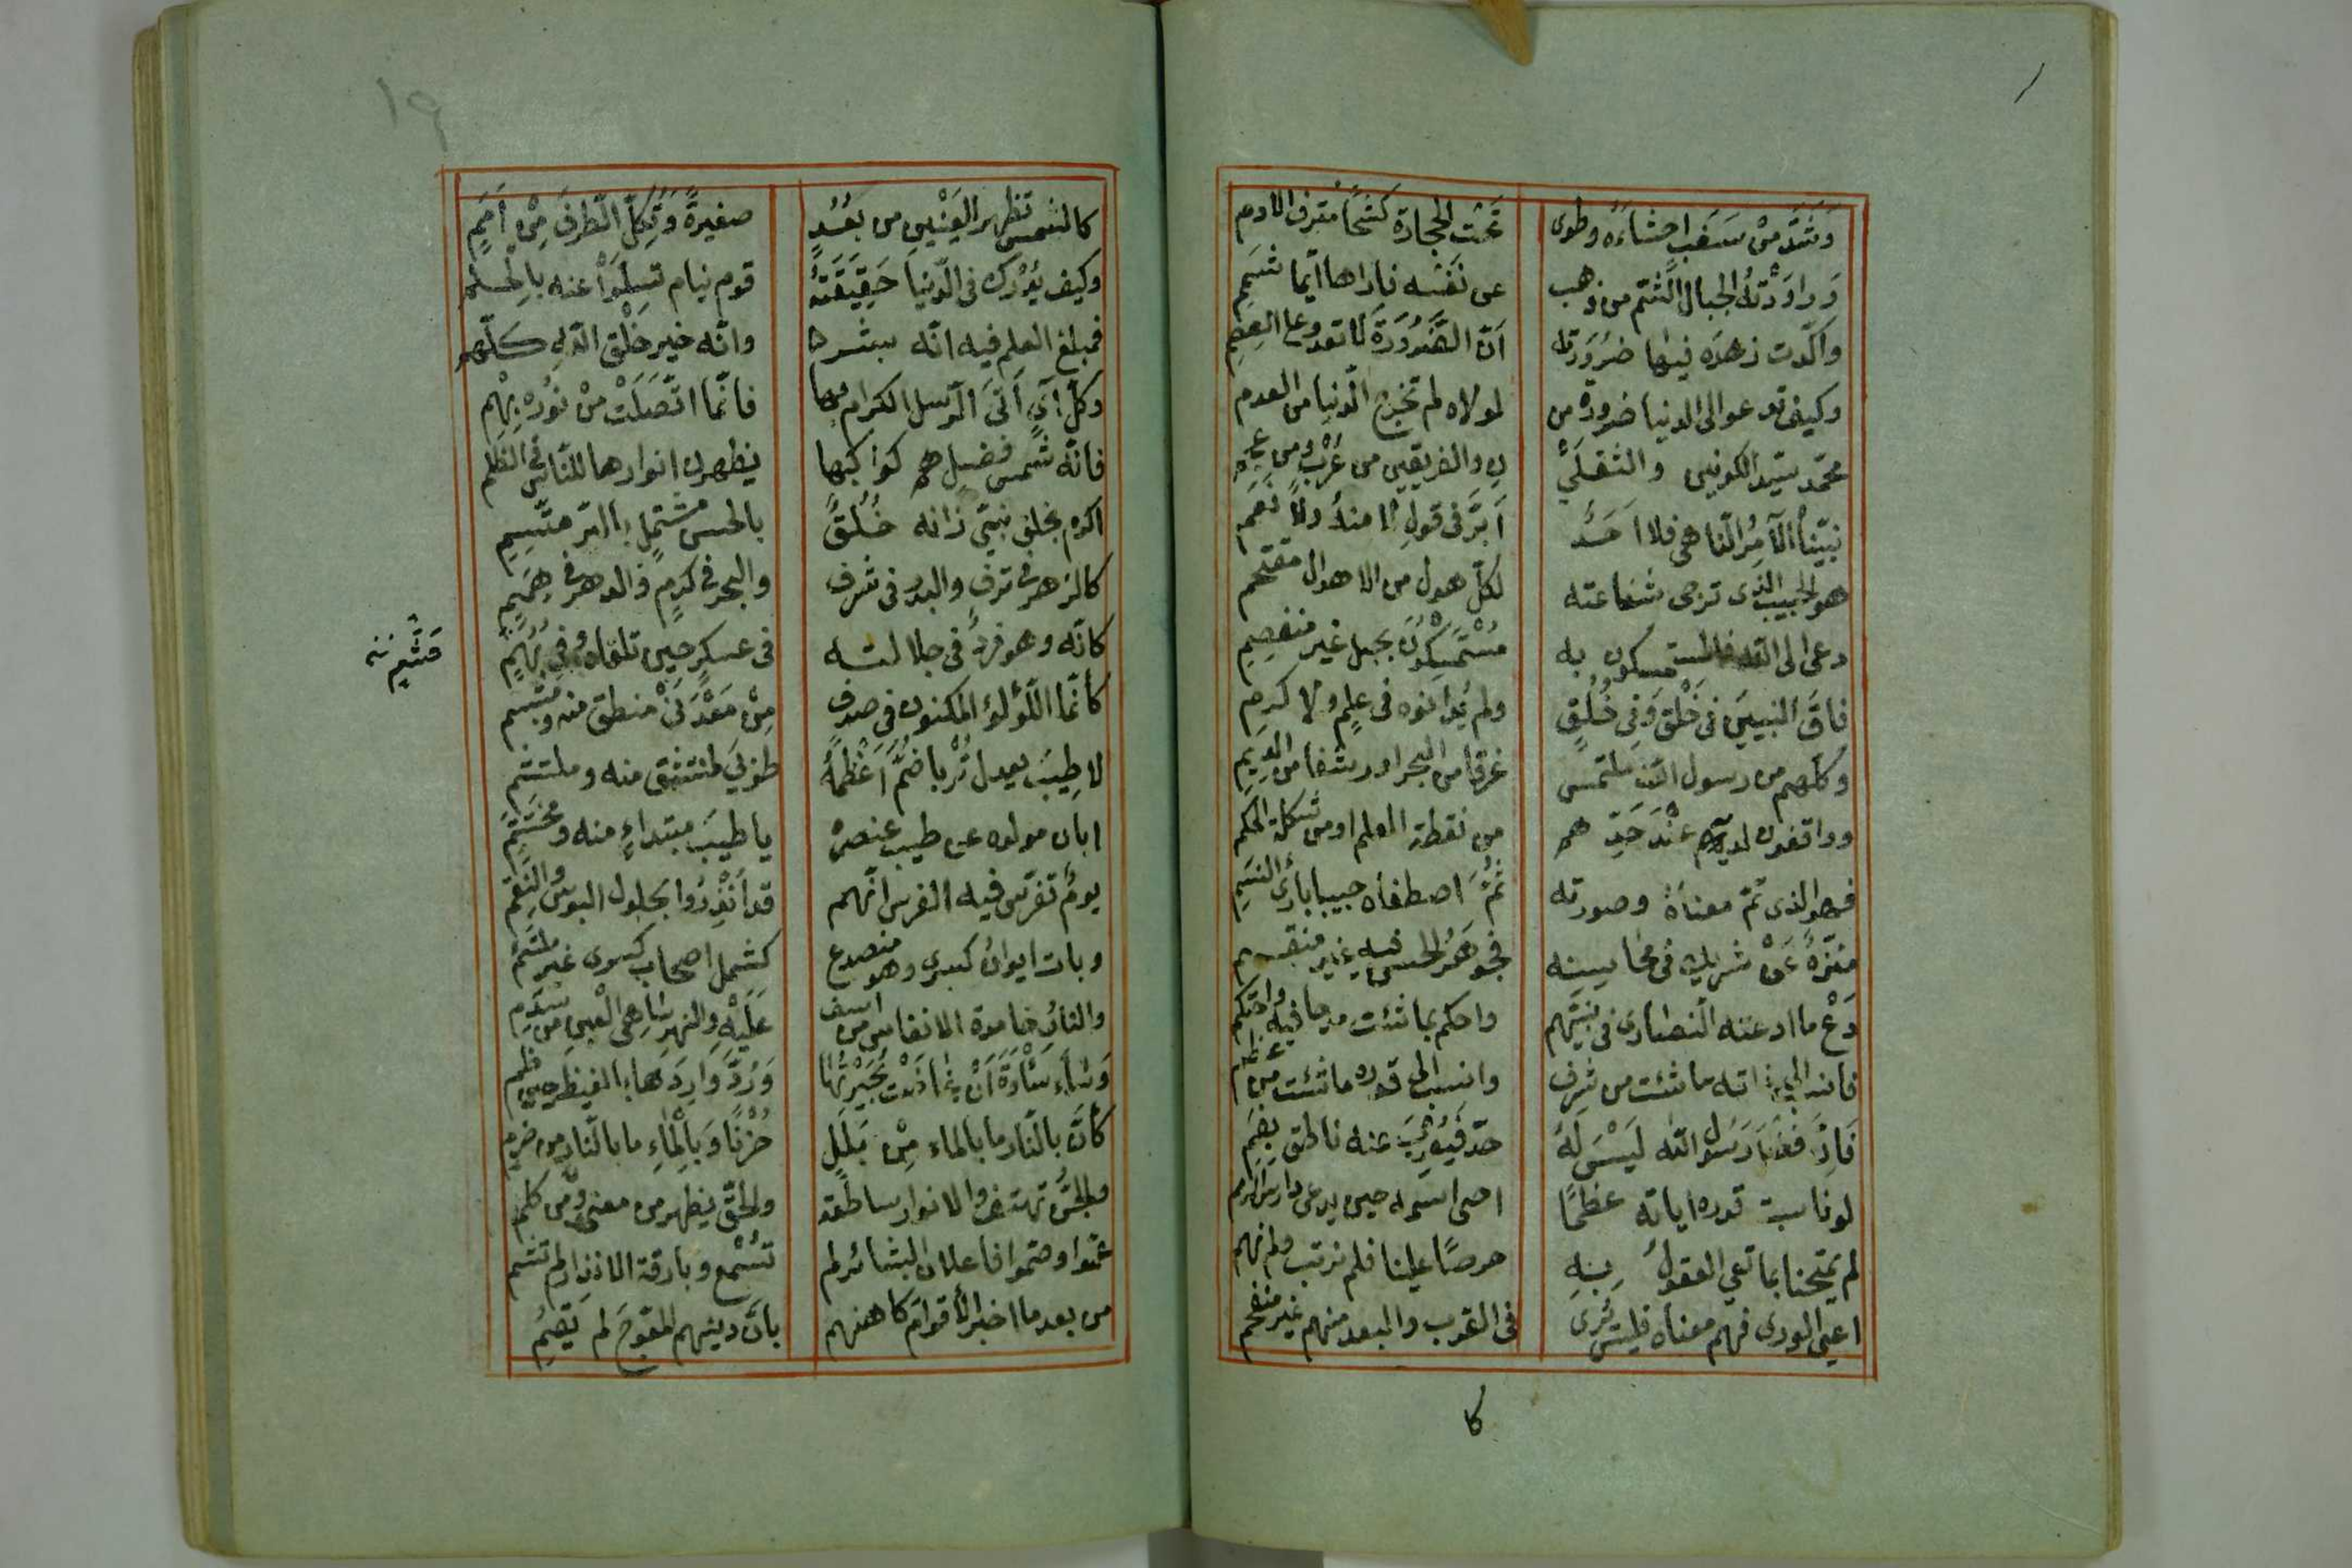 وَشَدَّ مِنْ سَغَبٍ احشاءَهُ وطوى تَحْتَ الحجارة كَشْحًا مترف الادم
وَراوَدَتْهُ الجبال الشّم من ذهب عن نَفْسِه فاراها ايّما شَمَمِ
واكّدت زهدَه فيها ضَرُورَته اَنّ الضَّرُورَةَ لا تعدو على العِصَمِ
وكيف تدعوالى الدنيا ضرورة من لولاه لم تخرج الدّنيا من العدم
محمّد سيّد الكونين والثقلَيْ نِ والفريقين من عُرْب ومن عجم
نبيّنا الآمِرُ النّاهى فلا اَحَدٌ اَبَرَّ فى قولِ لا منهُ ولا نَعَمِ
هو الحبيب الذى ترجى شفاعته لكلّ هول من الاهوال مقتحم
دعى الى الله فالمستمسكون به مُسْتَمْسِكُونَ بحبل غير منفصِمِ
فاقَ النبيينَ فى خَلْقٍ وَفِى خُلُقٍ ولم يُدانوه فى عِلمٍ ولا كرمِ
وكلّهم من رسول الله ملتمس غرفا من البحر او رشفا من الدِيَمِ
وواقفون لديه عِنْدَ حَدّهم من نقطة العلم او من شكلة الحكم
فهو الذى تمّ معناهُ وصورته ثُمَّ اصطفاه حبيبا بارئ النسمِ
منزّه عَنْ شريك فى محاسِنه فجَوهَرُ الحسن فيه غير منقسم
دَعْ ما ادعته النصارى فى نبيّهم واحكم بما شئت مدحا فيه واحتكم
فانسب الى ذاته ما شئت من شرف وانسب الى قدره ما شئت من عظم
فَاِنَّ فَضْلَ رَسُولِ الله لَيْسَ لَهُ حدّ فيُعْرِبَ عنه ناطق بِفَمِ
لو ناسبت قدره اياته عظمًا احى اسمه حين يدعى دارس الرمم
لم يمتحنا بما تعيى العقولُ بِهِ حرصًا علينا فلم نرتب ولم نهم
اعيى الورى فهم معناه فليس يُرى فى القرب والبعد منهم غير منفحم
كا
١٩
كالشمس تظهر للعَيْنَينِ من بُعُدٍ صغيرةً وَتُكِلّ الطرفَ مِنْ اَمَمِ
وكيف يُدْرِك فى الدّنيا حَقِيقَتَهُ قوم نيام تسلّوْا عنه بالحلم
فمبلغ العلم فيه انّه بشر وانّه خير خَلْقِ الله كلّهم
وكلّ آيٍ اَتَى الرّسل الكرام بها فانّما اتّصلَتْ مِنْ نوره بِهِمِ
فانّه شمس فضل هم كواكبها يظهرن انوارها للنّاس فى الظلم
اكرم بخلق نبىّ زانه خُلُقٌ بالحسن مشتمل بالبرّ متّسِمِ
كالزهر فى ترفٍ والبدر فى شرف والبحر فى كرمٍ والدهر فى هِمَمِ
كانّه وهو فردٌ فى جلالته فى عسكرٍ حين تلقاه وفى بُهَمٍ
كأنّما اللّؤلؤ المكنون فى صدفٍ مِنْ مَعْدَنَىْ منطق منه ومبتسم
لا طِيبَ يعدل تُرْبا ضمّ اَعْظُمَهُ طوبى لمنتشق منه وملتثم
ابان مولده عن طيب عنصره يا طيبَ مبتداءٍ منه ومختتمِ
يومٌ تفرّس فيه الفرس انّهم قد اُنْذِرُوا بحلول البوس والنقم
وبات ايوانُ كسرى وهو منصدع كشمل اصحاب كسرى غير ملتئم
والنارُ خامدة الانفاس من اسف عَلَيْهِ والنهر ساهى العين من سَدَمِ
وَسَاءَ سَاْوَةَ اَنْ غاضت بُحَيْرَتُهَا وَرُدَّ وَارِدُهَا بالغيظ حين ظمى
كأنّ بالنّار ما بالماء مِنْ بَلَلٍ حُزْنًا وَبِالْمَاءِ ما بالنّار من ضرم
والجنُّ تهتف والانوار ساطعة والحقّ يظهر من معنى ومن كلم
عموا وصمّوا فاعلان البشائر لم تُسْمع وبارقة الانذار لم تشم
من بعد ما اخبر الأقوامَ كاهنهم بانَّ دينهم المعوَجّ لم يَقُمِ